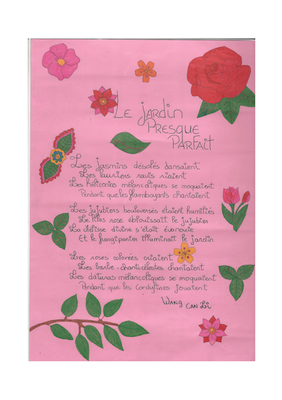 Le jardin
presque
parfait
Les jasmins désolés dansaient
Les lauriers ravis riaient
Les mélancoliques se moquaient
Pendant que les flamboyants chantaient
Les jujubiers bouleversés étaient humiliés
Le lilas rose éblouissait le jujubier
La déesse divine s'était évanouie
Et le illuminait le jardin
Les roses criaient
Les chantaient
Les daturas mélancoliques se moquaient
Pendant que les jouaient
Wang Can Li